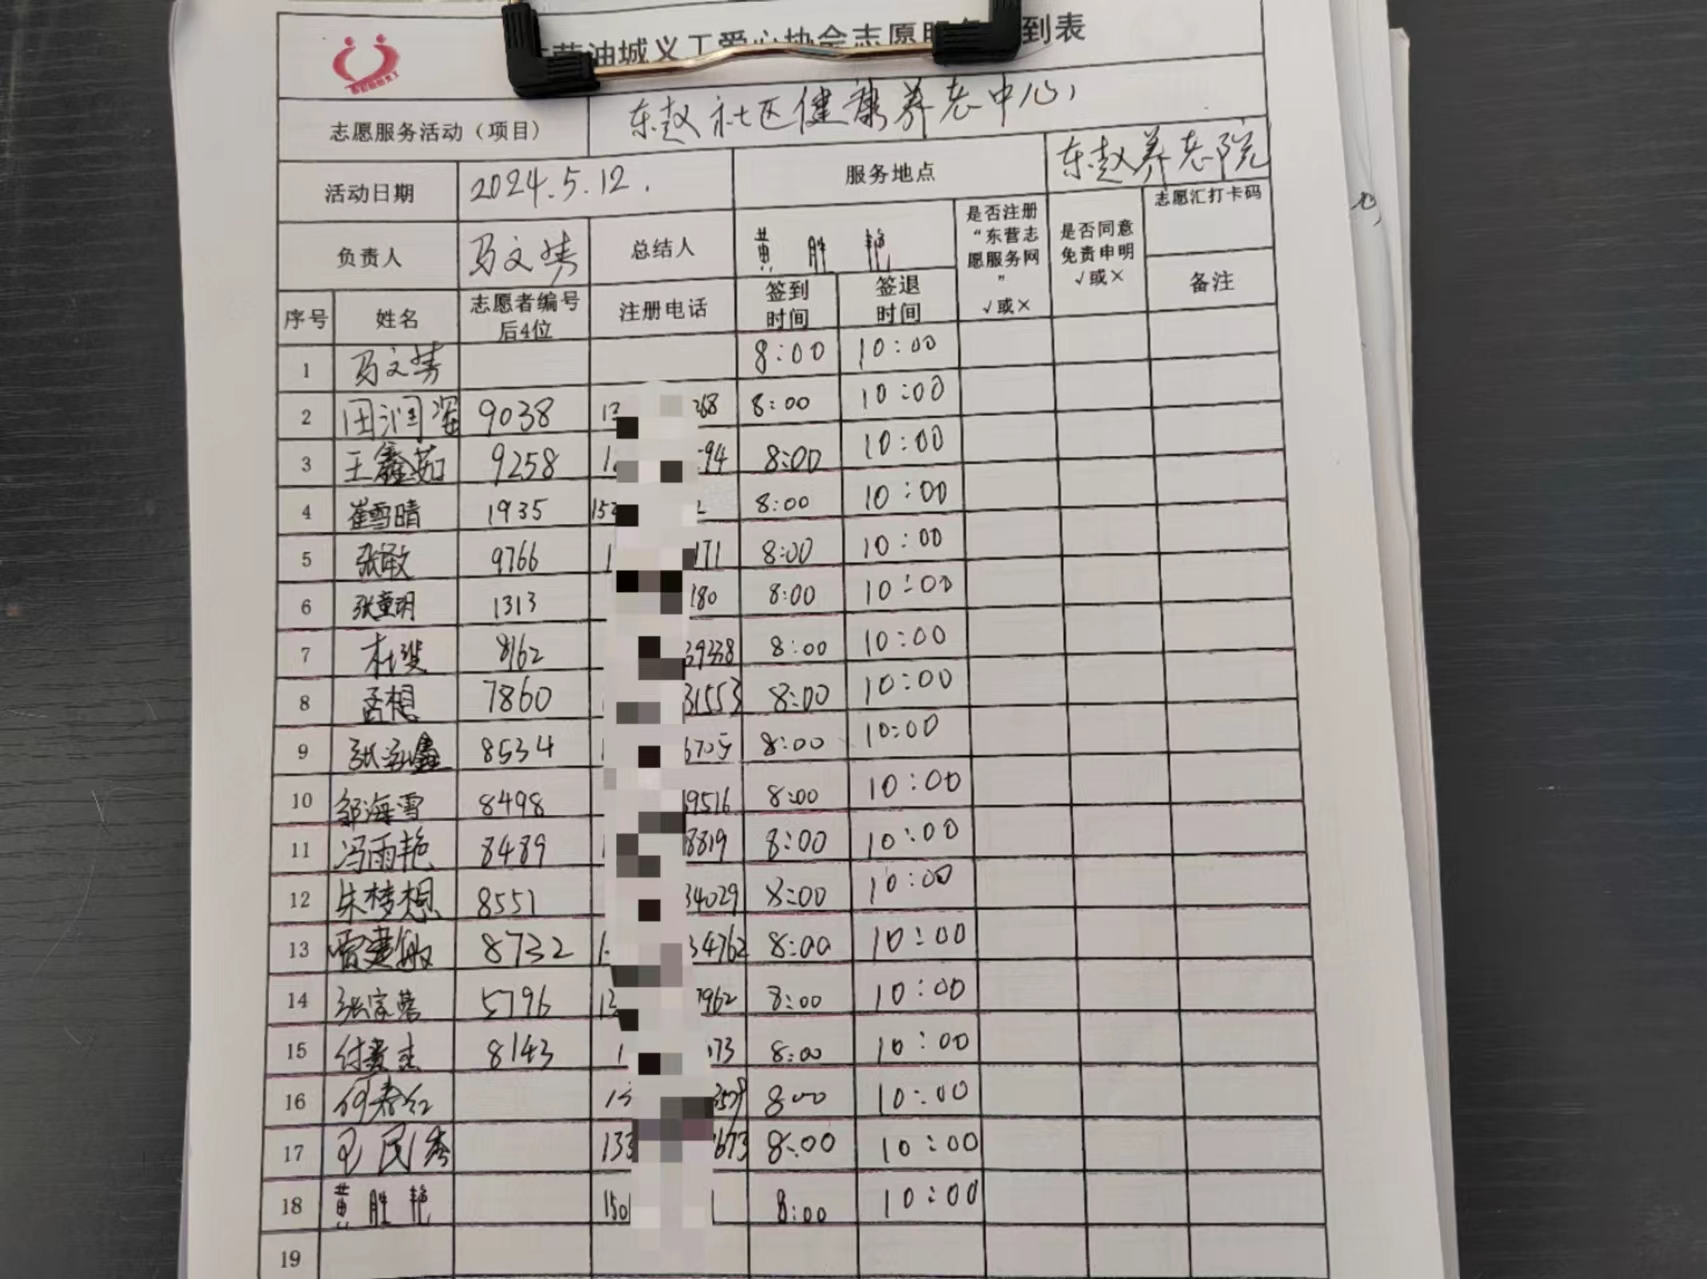 油城义工爱心协会志愿服务签到表
志愿服务活动（项目） 东赵社区健康养老中心
活动日期 2024.5.12. 服务地点 东赵养老院
负责人 马文 总结人 黄胜艳 是否注册“东营志愿服务网” √或× 是否同意免责申明 √或× 志愿汇打卡码
序号 姓名 志愿者编号后4位 注册电话 签到时间 签退时间 备注
1 马文 8:00 10:00
2 田润 9038 368 8:00 10:00
3 王鑫茹 9258 94 8:00 10:00
4 崔雪晴 1935 15 8:00 10:00
5 张敏 9766 1 171 8:00 10:00
6 张童明 1313 180 8:00 10:00
7 杜斐 8162 39338 8:00 10:00
8 孟想 7860 31553 8:00 10:00
9 张鑫 8534 8:00 10:00
10 邹海雪 8498 9516 8:00 10:00
11 冯雨艳 8489 8819 8:00 10:00
12 朱梦想 8551 34029 8:00 10:00
13 雷建敏 8732 34762 8:00 10:00
14 张家蓉 5796 7962 8:00 10:00
15 付 8143 1 73 8:00 10:00
16 何春红 8:00 10:00
17 王民秀 133 673 8:00 10:00
18 黄胜艳 150 8:00 10:00
19